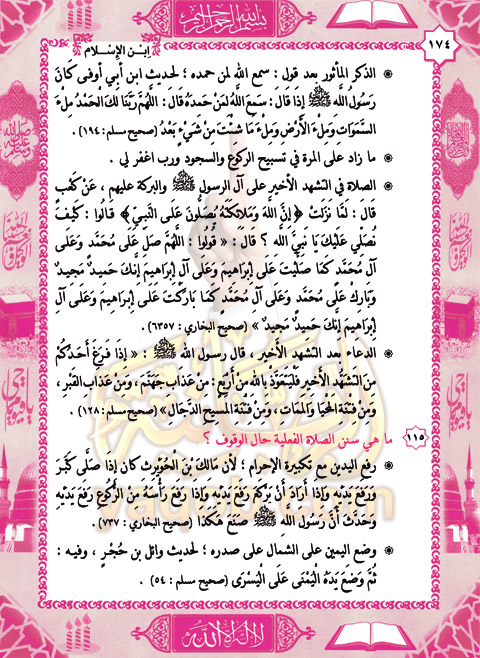 بسم الله الرحمن الرحيم
١٧٤
ابن الإسلام
الذكر المأثور بعد قول : سمع الله لمن حمده ؛ لحديث ابن أبي أوفى كَانَ
رَسُولُ اللَّهِ ﷺ إِذَا قَالَ : سَمِعَ اللَّهُ لِمَنْ حَمِدَهُ قَالَ : اللَّهُمَّ رَبَّنَا لَكَ الْحَمْدُ مِلْءَ
السَّمَوَاتِ وَمِلْءَ الْأَرْضِ وَمِلْءَ مَا شِئْتَ مِنْ شَيْءٍ بَعْدُ (صحيح مسلم : ١٩٤) .
ما زاد على المرة في تسبيح الركوع والسجود ورب اغفر لي .
الصلاة في التشهد الأخير على آل الرسول ﷺ والبركة عليهم ، عَنْ كَعْبٍ
قَالَ : لَمَّا نَزَلَتْ ﴿ إِنَّ اللَّهَ وَمَلَائِكَتَهُ يُصَلُّونَ عَلَى النَّبِيِّ ﴾ قَالُوا : كَيْفَ
نُصَلِّي عَلَيْكَ يَا نَبِيَّ اللَّهِ ؟ قَالَ : « قُولُوا : اللَّهُمَّ صَلِّ عَلَى مُحَمَّدٍ وَعَلَى
آلِ مُحَمَّدٍ كَمَا صَلَّيْتَ عَلَى إِبْرَاهِيمَ وَعَلَى آلِ إِبْرَاهِيمَ إِنَّكَ حَمِيدٌ مَجِيدٌ
وَبَارِكْ عَلَى مُحَمَّدٍ وَعَلَى آلِ مُحَمَّدٍ كَمَا بَارَكْتَ عَلَى إِبْرَاهِيمَ وَعَلَى آلِ
إِبْرَاهِيمَ إِنَّكَ حَمِيدٌ مَجِيدٌ » (صحيح البخاري : ٦٣٥٧) .
الدعاء بعد التشهد الأخير ، قال رسول الله ﷺ : « إِذَا فَرَغَ أَحَدُكُمْ
مِنَ التَّشَهُّدِ الْأَخِيرِ فَلْيَتَعَوَّذْ بِاللهِ مِنْ أَرْبَعٍ : مِنْ عَذَابِ جَهَنَّمَ ، وَمِنْ عَذَابِ الْقَبْرِ ،
وَمِنْ فِتْنَةِ الْمَحْيَا وَالْمَمَاتِ ، وَمِنْ فِتْنَةِ الْمَسِيحِ الدَّجَّالِ » (صحيح مسلم : ١٢٨) .
١١٥ ما هي سنن الصلاة الفعلية حال الوقوف ؟
رفع اليدين مع تكبيرة الإحرام ؛ لأن مَالِكَ بْنَ الْحُوَيْرِثِ كان إِذَا صَلَّى كَبَّرَ
وَرَفَعَ يَدَيْهِ وَإِذَا أَرَادَ أَنْ يَرْكَعَ رَفَعَ يَدَيْهِ وَإِذَا رَفَعَ رَأْسَهُ مِنَ الرُّكُوعِ رَفَعَ يَدَيْهِ
وَحَدَّثَ أَنَّ رَسُولَ اللهِ ﷺ صَنَعَ هَكَذَا (صحيح البخاري : ٧٣٧) .
وضع اليمين على الشمال على صدره ؛ لحديث وائل بن حُجْرٍ ، وفيه :
ثُمَّ وَضَعَ يَدَهُ الْيُمْنَى عَلَى الْيُسْرَى (صحيح مسلم : ٥٤) .
لا إله إلا الله